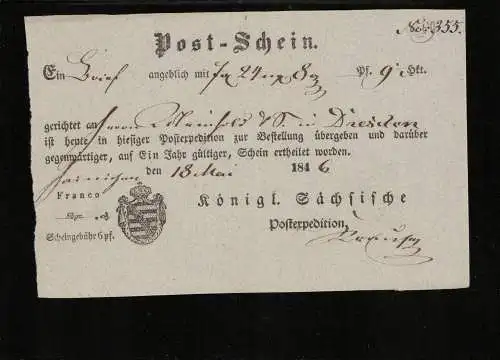 No. 355.
Post-Schein.
Ein Brief angeblich mit 24 8 Pf. 9 Lht.
gerichtet an Herrn Meinhold & S. in Dresden
ist heute in hiesiger Postexpedition zur Bestellung übergeben und darüber
gegenwärtiger, auf Ein Jahr gültiger, Schein ertheilet worden.
Hainichen den 18 Mai 1846
Franco
Königl. Sächsische
Postexpedition
Scheingebühr 6 pf.